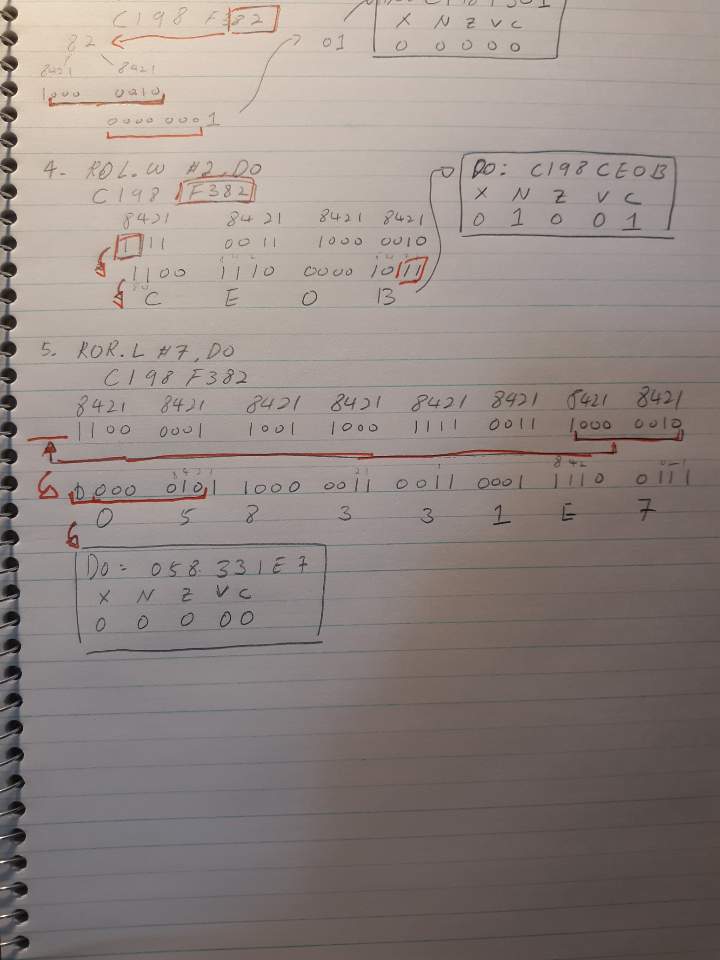 C198 F382
82
01
X N Z V C
0 0 0 0 0
8421 8421
1000 0010
0000 0001
4. ROL.W #2, D0
C198 F382
8421 8421 8421 8421
1111 0011 1000 0010
1100 1110 0000 1011
C E 0 B
D0: C198 CE0B
X N Z V C
0 1 0 0 1
5. ROR.L #7, D0
C198 F382
8421 8421 8421 8421 8421 8421 8421 8421
1100 0001 1001 1000 1111 0011 1000 0010
0000 0101 1000 0011 0011 0001 1110 0111
0 5 8 3 3 1 E 7
D0 = 058331E7
X N Z V C
0 0 0 0 0